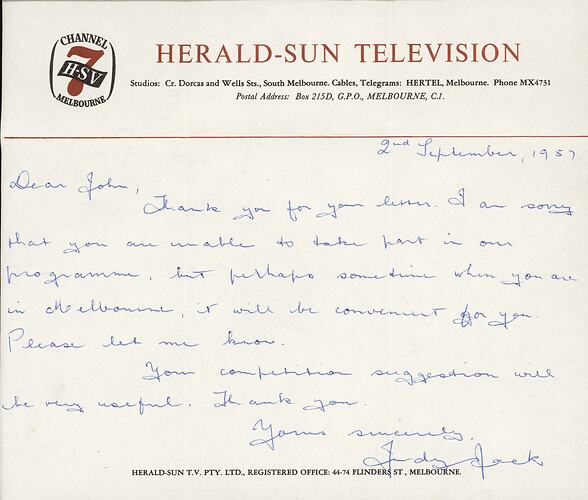 CHANNEL
7
H·S·V
MELBOURNE
HERALD-SUN TELEVISION
Studios: Cr. Dorcas and Wells Sts., South Melbourne. Cables, Telegrams: HERTEL, Melbourne. Phone MX4751
Postal Address: Box 215D, G.P.O., MELBOURNE, C.1.
2nd September, 1957
Dear John,
Thank you for your letter. I am sorry
that you are unable to take part in our
programme, but perhaps sometime when you are
in Melbourne, it will be convenient for you.
Please let me know.
Your competition suggestion will
be very useful. Thank you.
Yours sincerely,
Judy Jack
HERALD-SUN T.V. PTY. LTD., REGISTERED OFFICE: 44-74 FLINDERS ST., MELBOURNE.